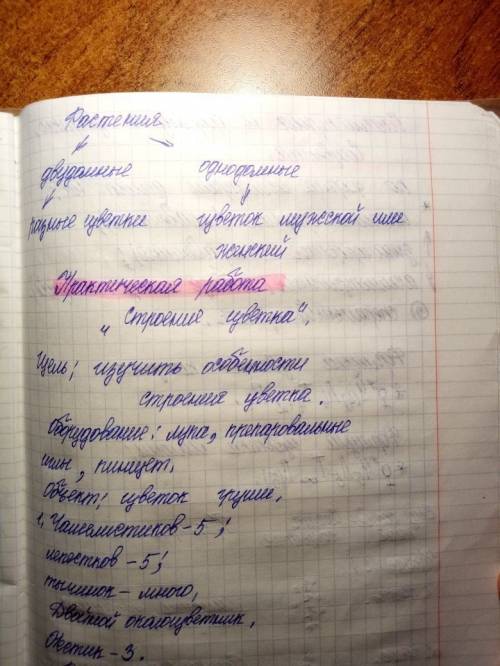 Растения
двудомные однодомные
разные цветки цветок мужской или
женский
Практическая работа
"строение цветка".
Цель: изучить особенности
строения цветка.
Оборудование: лупа, препаровальные
иглы, пинцет.
Объект: цветок груши.
1. Чашелистиков-5;
лепестков-5;
тычинок-много,
Двойной околоцветник,
Пестик-3.